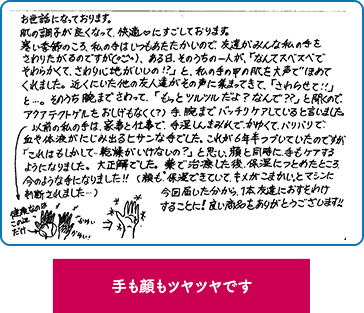 お世話になっております。
肌の調子が良くなって、快適♡にすごしております。
寒い季節のころ、私の手はいつもあたたかいので、友達がみんな私の手を
さわりたがるのですが(^o^;)、ある日、そのうちの一人が、「なんてスベスベで
やわらかくて、さわり心地がいいの!?」と、私の手の甲の肌を大声でほめて
くれました。近くにいた他の友人達がその声に集まってきて、「さわらせて!!」
と…。そのうち腕までさわって、「もっとツルツルだよ?なんで??」と聞くので、
アクアテクトゲルをおしげもなく(?)手、腕までバッチリケアしていると言いました。
以前の私の手は、家事と仕事で、手湿しんまみれで、かゆくて、バリバリで、
血や体液がにじみ出るヒサンな手でした。これが6年半つづいていたのですが
「これはもしかして…乾燥がいけないの?」と思い、顔と同時に、手もケアする
ようになりました。大正解でした。薬で治療した後、保湿につとめたところ
今のような手になりました!!(顔も"保湿できていて、キメがこまかい"とマシンに
判断されました…)
今回届いた分から、1本友達におすそわけ
することに!良い商品をありがとうございます!!
健康なのは
この辺
だけ
かゆい
かゆい
手も顔もツヤツヤです